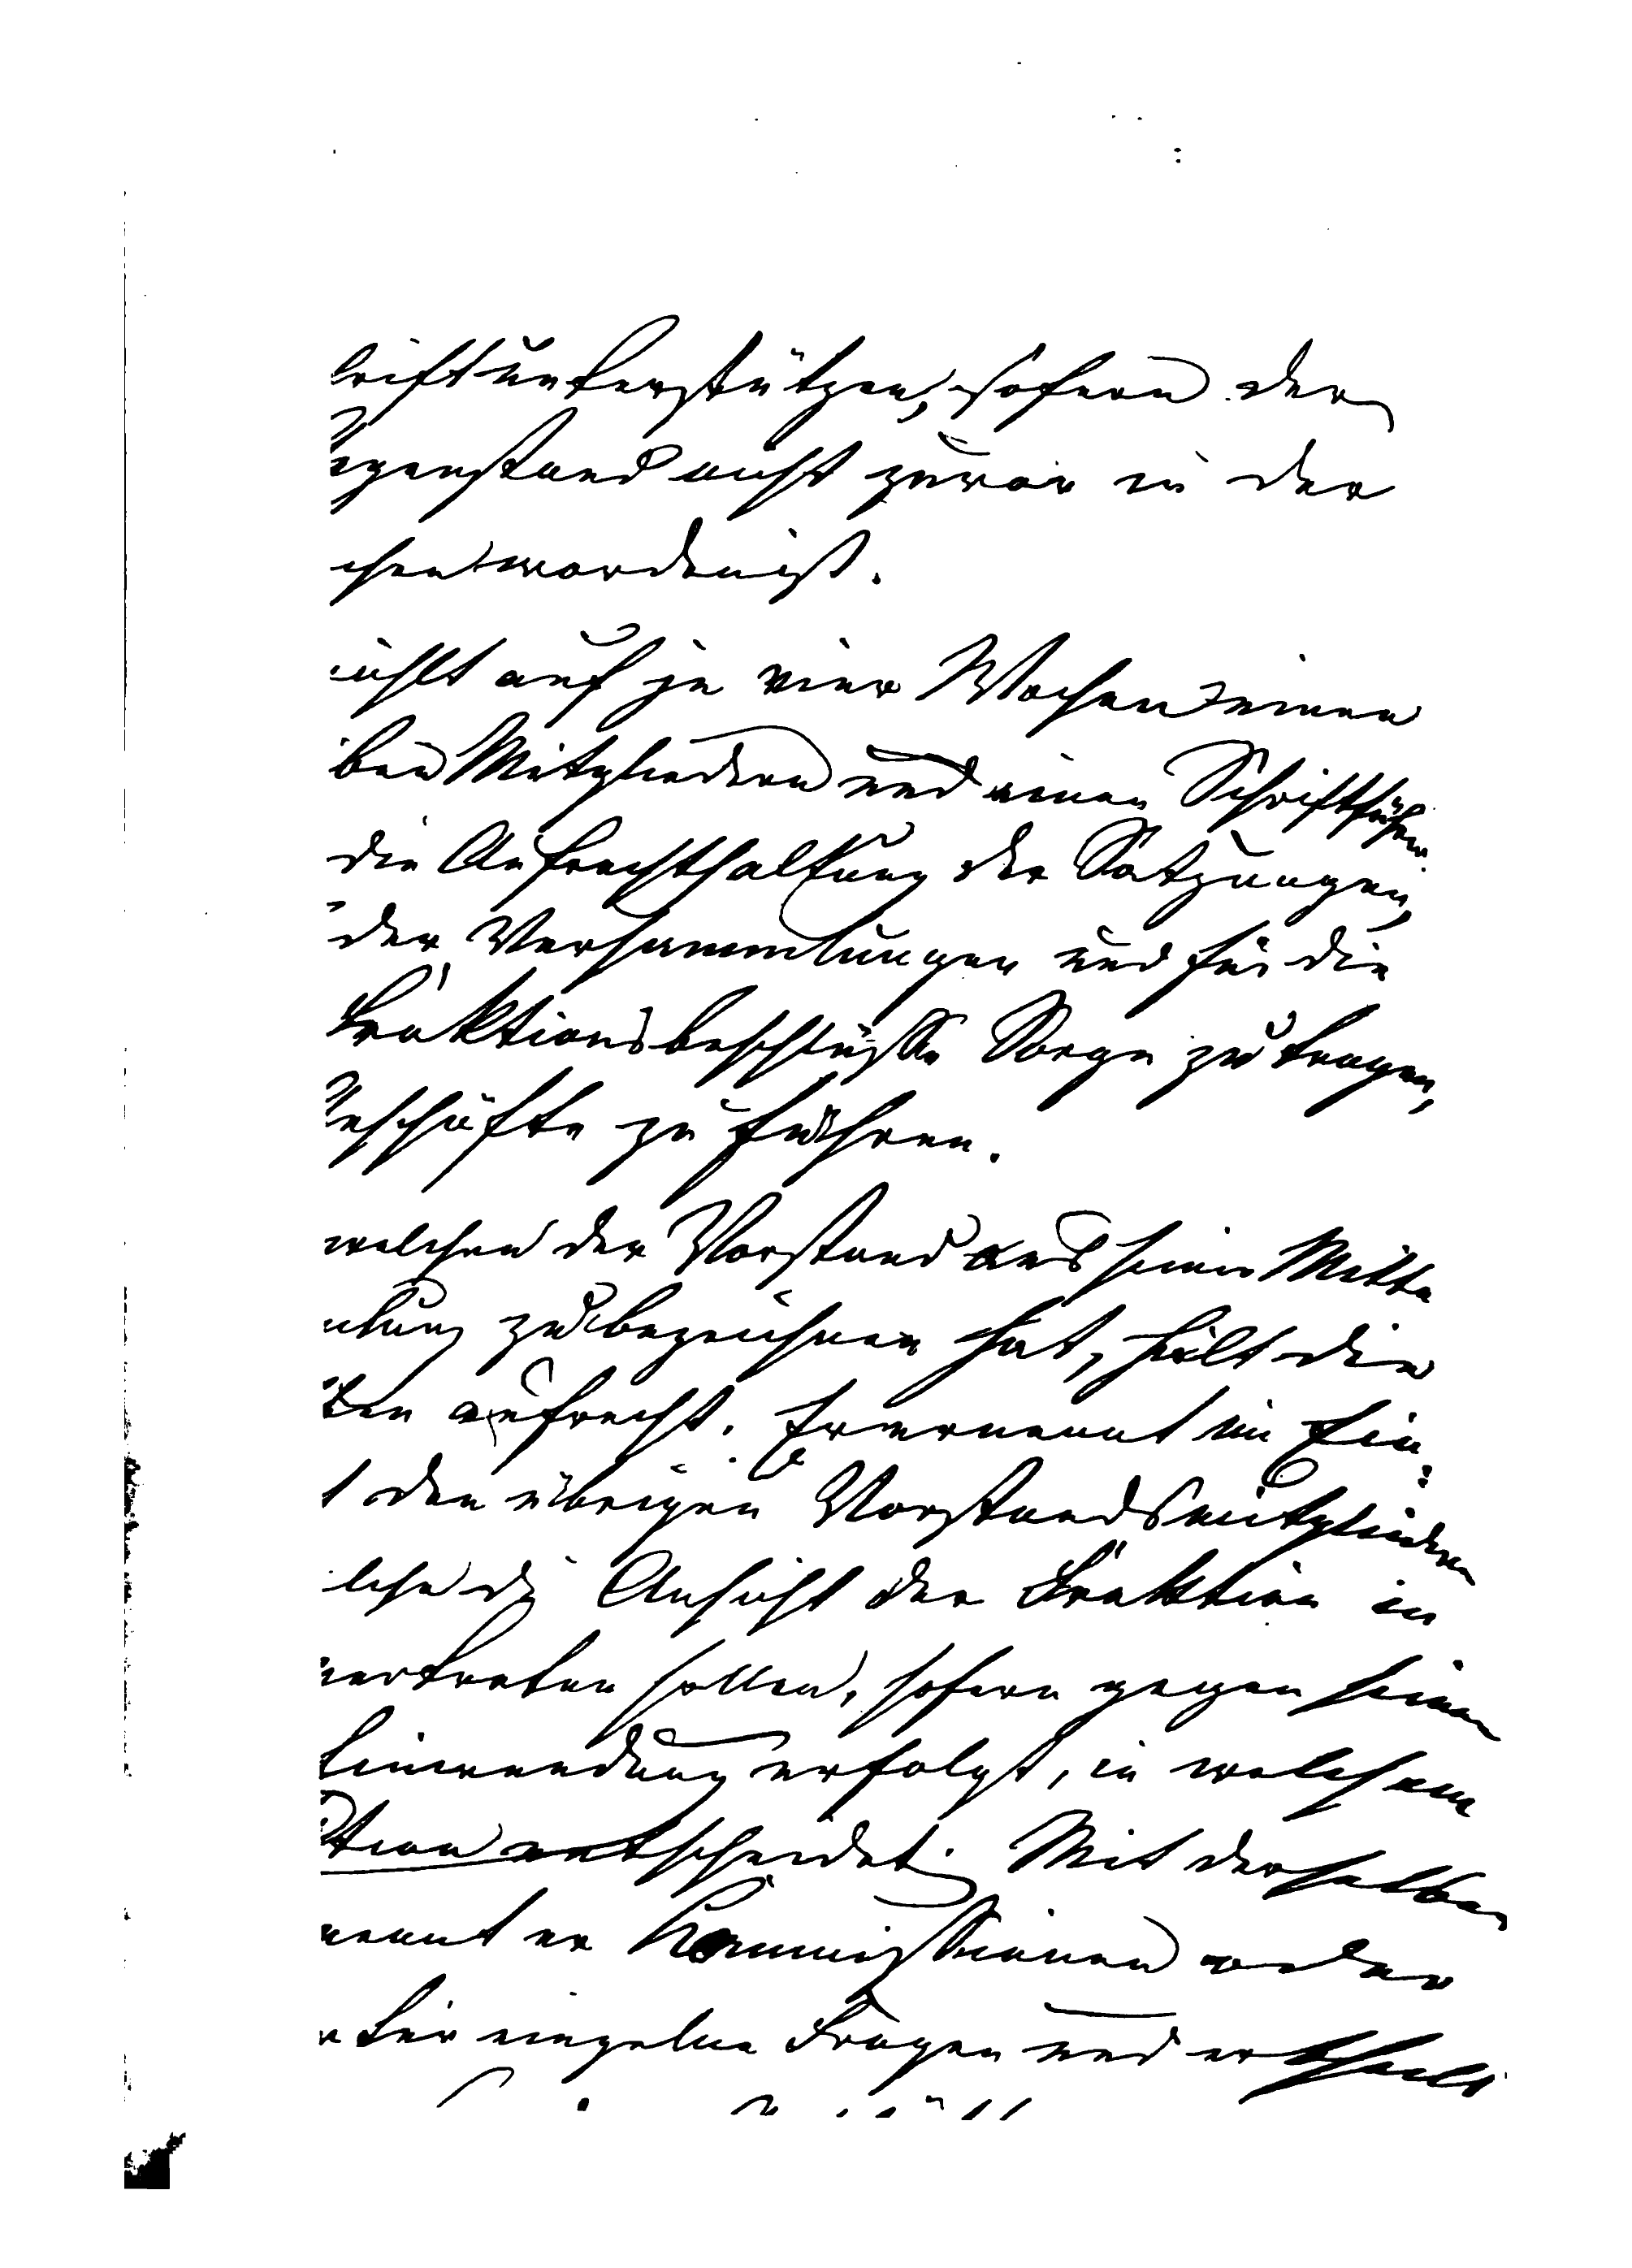 rift unterstützen, sofern der
egenstand nicht zuvor in der
chen worden ist.
ählt auf je vier Wochen einen
ben Mitgliedern und einen Schriftführer
die Aufrechthaltung der Satzungen,
der Versammlungen und für die
Fraktionsbeschlüsse Sorge zu tragen,
Geschäfte zu führen.
welchen der Vorstand aus seiner Mitte
lung zu bezeichnen hat, hält die
ten aufrecht. Er ernennt im Ein-
t den übrigen Vorstandsmitgliedern
lche die Ansicht der Fraktion in
vertreten sollen, sofern gegen seinen
Einwendung erfolgt, in welchem
ktion entscheidet. Mit derselben
nennt er Kommissionen oder
r für einzelne Fragen und ertheilt